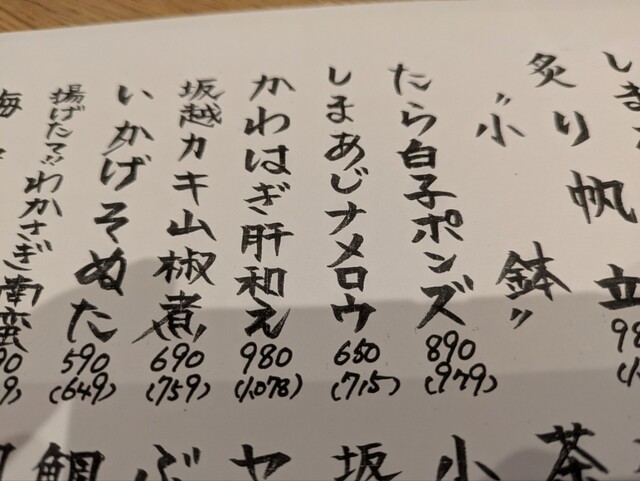 しま
炙り帆立
98
"小鉢"
たら白子ポンズ
890
(979)
しまあじナメロウ
650
(715)
かわはぎ肝和え
980
(1,078)
坂越カキ山椒煮
690
(759)
いかげそぬた
590
(649)
揚げたて!!わかさぎ南蛮
90
9)
海
茶
小
坂
ヤ
ぶ
鯛